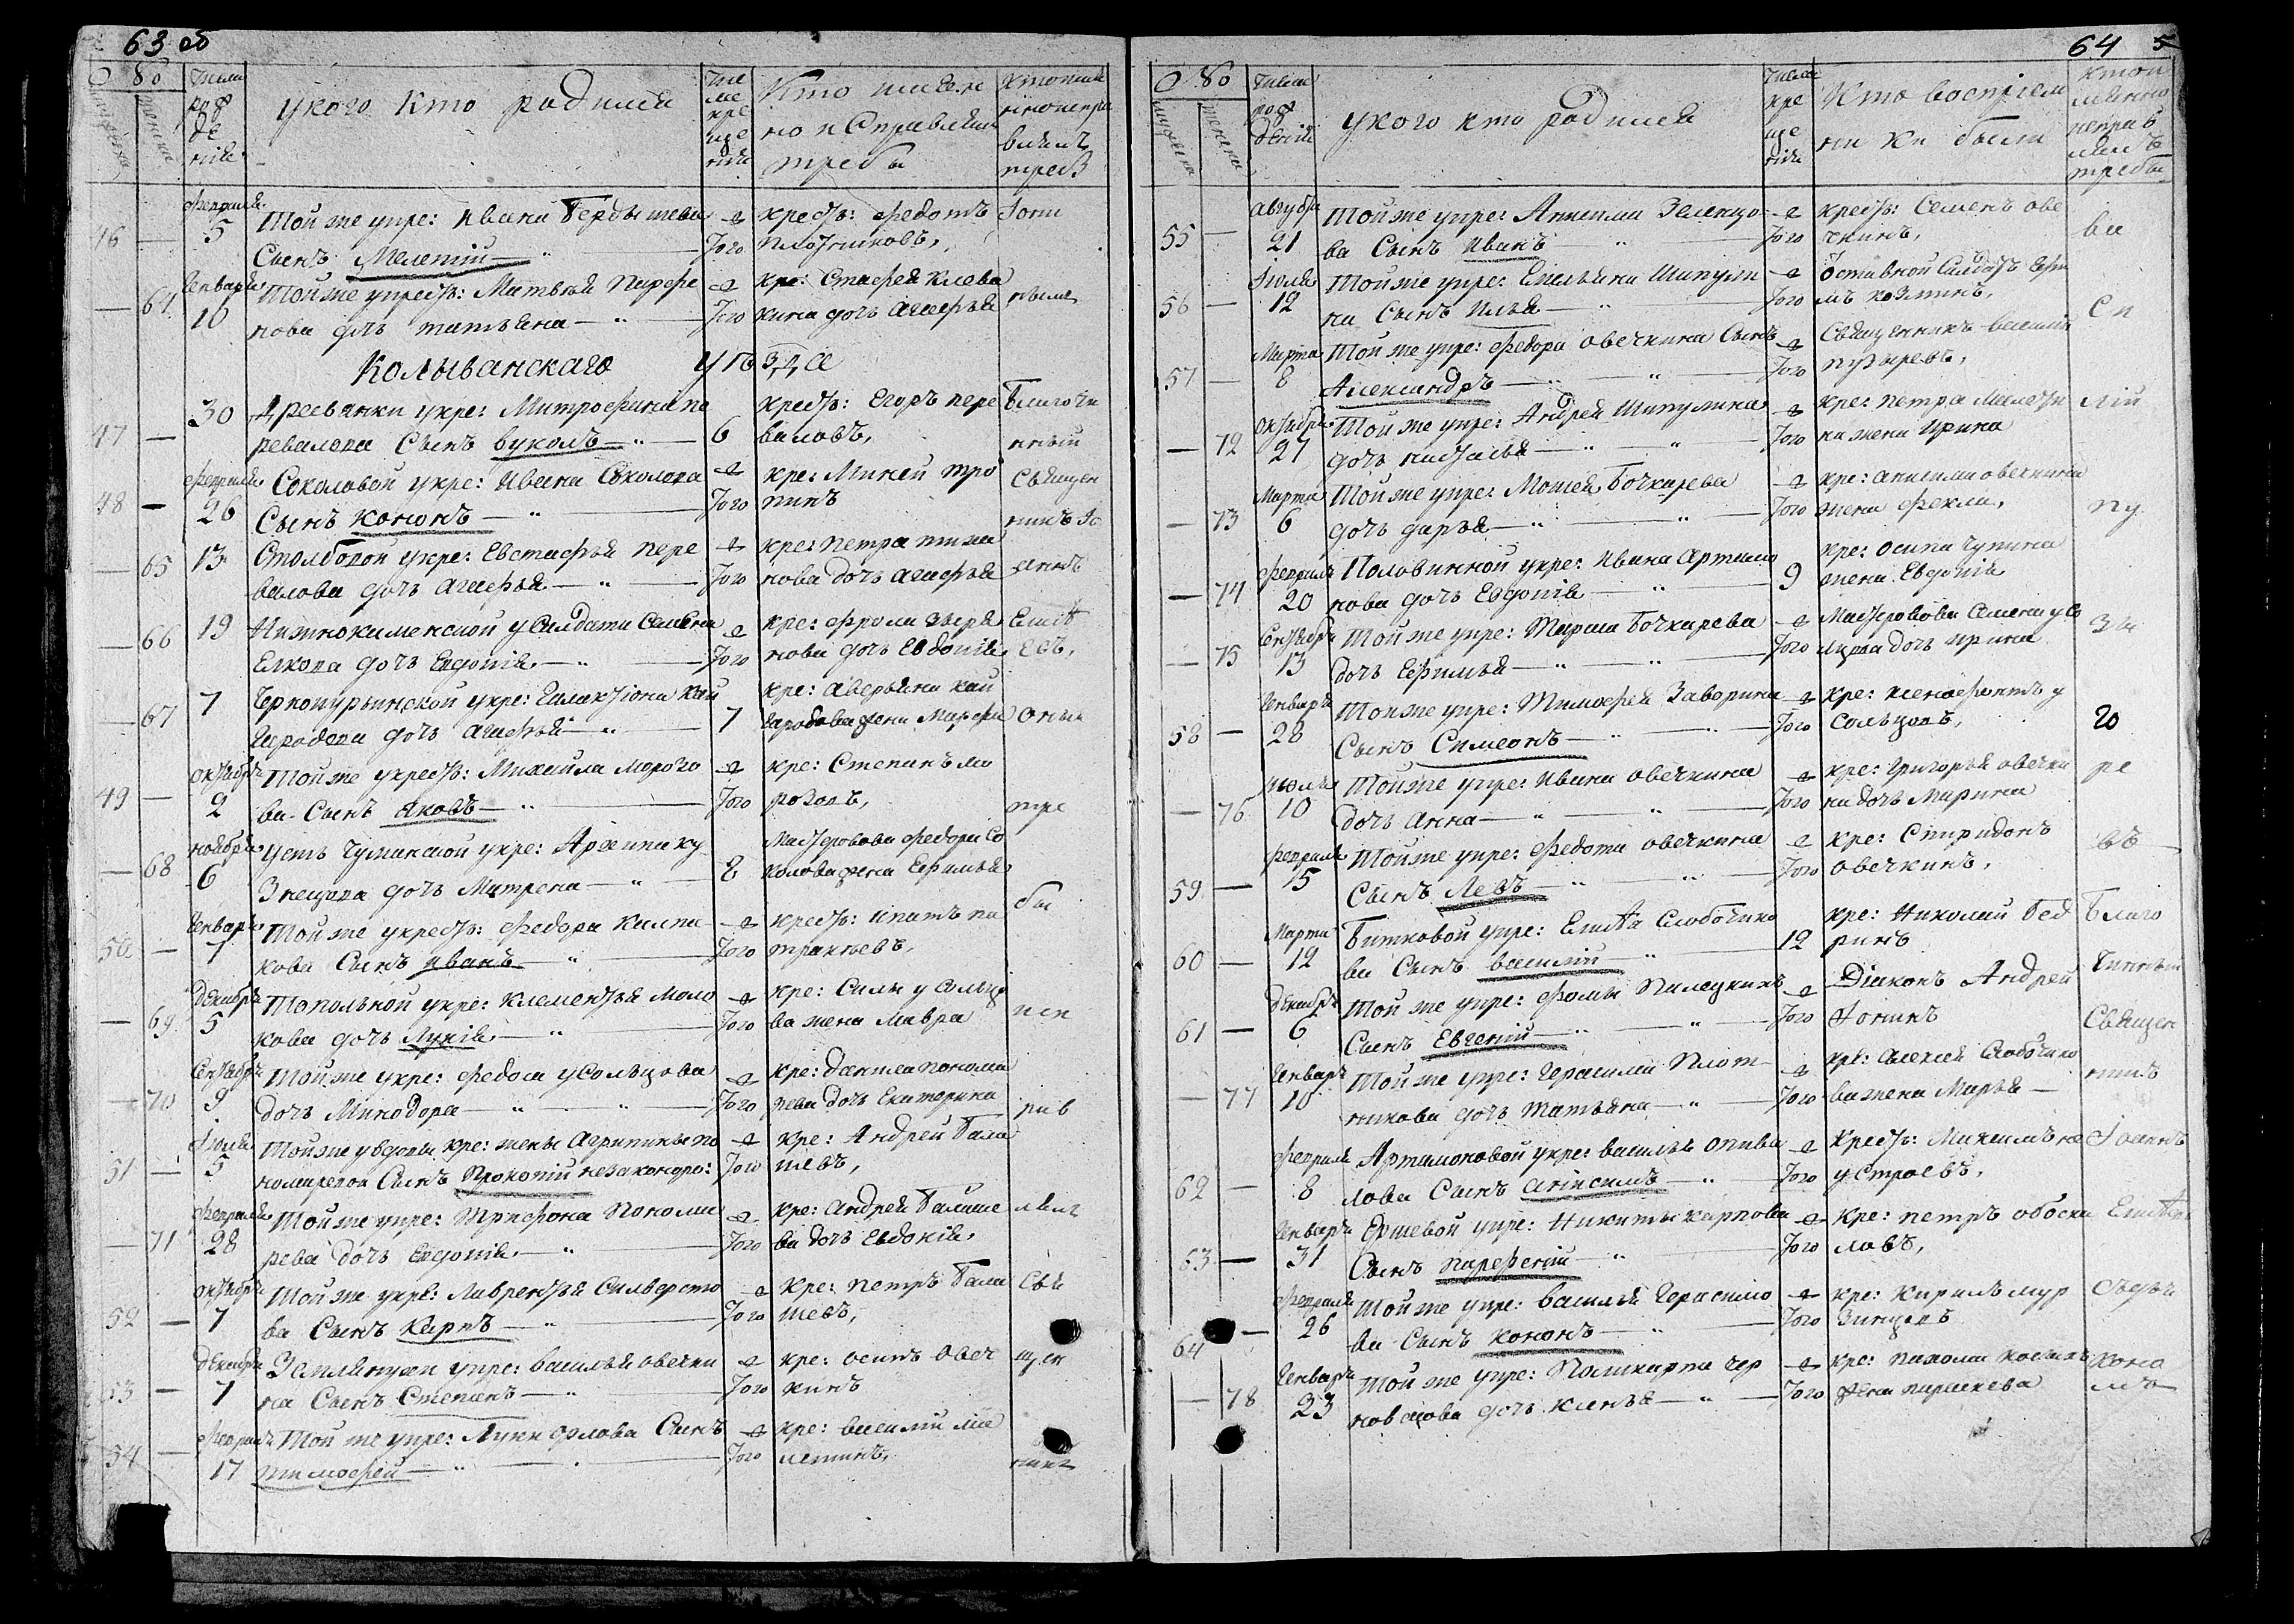 63 об
О No
мужеска
женска
числа
рож
де
нія
У кого кто родился
чи
сло
кре
ще
нія
Кто имян
но исправлял
требы
46 — февраля 5 Той же у кре: Ивана Бердышева
сынъ Мелетій — того
крест: Федотъ
Плотниковъ,
— 64 генваря 10 Той же у крест: Матвея Парфе
нова дочь Татьяна — того
кре: Стафея Клева
кина дочь Агафья
Колыванскаго уезда
47 — 30 Дресвянки у кре: Митрофана Пе
ревалова сынъ Вуколъ — 6
крест: Егоръ Пере
валовъ,
Благочи
нный
48 — февраля 26 Соколовой у кре: Ивана Соколова
сынъ Кононъ — того
кре: Миней Тро
пинъ
священ
— 65 13 Столбовой у кре: Евстафья Пере
валова дочь Агафья — того
кре: Петра
нова дочь Агафья
— 66 19 Нижнокаменской у салдата Семена
Елкова дочь Евдокія — того
кре: Фрола Зыря
нова дочь Евдокія
— 67 7 Чернопурьинской у кре: Галактіона Кай
гародова дочь Агафья — 7
кре: Аверьяна Кай
гародова жена Марфа
49 — октября 2 Той же у крест: Михаила Морозо
ва сынъ Яковъ — того
кре: Степанъ Мо
розовъ,
— 68 ноября 6 Усть Чуманской у кре: Архипа Ку
знецова дочь Матрена — 8
Мастеровова Федора Со
колова жена Ефимья
50 — генваря 7 Той же у крест: Федора Калпа
кова сынъ Иванъ — того
крест: Ипатъ Па
тракеевъ,
бы
— 69 декабря 5 Топольной у кре: Клементья Моло
кова дочь Лукія — того
кре: Силы Усольцо
ва жена Мавра
исп
— 70 сентября 9 Той же у кре: Федоса Усольцова
дочь Минодора — того
кре: Данила Понома
рева дочь Екатерина
рав
51 — іюля 5 Той же у вдовы кре: жены Агрипины По
номаревой сынъ Прокопій незаконоро: того
кре: Андрей Бала
шевъ,
— 71 февраля 28 Той же у кре: Трифона Понома
рева дочь Евдокія — того
кре: Андрея Балаше
ва дочь Евдокія,
лялъ
52 — октября 7 Той же у кре: Лаврентья Силверсто
ва сынъ Карпъ — того
кре: Петръ Бала
шевъ,
Свя
53 — декабря 7 Землянухи у кре: Василья Овечки
на сынъ Степанъ — того
кре: Осипъ Овеч
кинъ
щен
54 — февраля 17 Той же у кре: Луки Орлова сынъ
Тимофей — того
кре: Василій Ма
летинъ,
никъ
64
О No
мужеска
женска
числа
рож
денія
У кого кто родился
числа
кре
ще
нія
Кто воспріем
ники были
кто и
мянно
исправ
лялъ
требы
55 — августа 21 Той же у кре: Анисима Зеленцо
ва сынъ Иванъ — того
крест: Семенъ Ове
чкинъ,
Ва
56 — іюля 12 Той же у кре: Емельяна Шипули
на сынъ Илья — того
Оставной салдатъ
Козминъ,
си
57 — марта 8 Той же у кре: Федора Овечкина сынъ
Александръ — того
Священникъ Василій
Пузыревъ,
— 72 октября 27 Той же у кре: Андрея Шипулина
дочь Наталья — того
кре: Петра Малети
на жена Ирина
лій
— 73 марта 6 Той же у кре: Мосея Бочкарева
дочь Дарья — того
кре: Анисима Овечкина
жена Фекла,
Пу
— 74 февраля 20 Половинной у кре: Ивана Артамо
нова дочь Евдокія — 9
кре: Осипа Чупина
жена Евдокія
— 75 сентября 13 Той же у кре: Тараса Бочкарева
дочь Ефимья — того
Мастеровова Семена Усо
льцова дочь Ирина
зы
58 — генваря 28 Той же у кре: Тимофея Заворина
сынъ Симеонъ — того
кре: Ксенофонтъ У
сольцовъ,
— 76 іюля 10 Той же у кре: Ивана Овечкина
дочь Анна — того
кре: Григорья Овечки
на дочь Марина
ре
59 — февраля 15 Той же у кре: Федота Овечкина
сынъ Левъ — того
кре: Спиридонъ
Овечкинъ,
въ
60 — марта 12 Битковой у кре: Слободчико
ва сынъ Василій — 12
кре: Николай Бед
ринъ
Благо
чинный
61 — декабря 6 Той же у кре: Фомы Палецкихъ
сынъ Евгеній — того
Діаконъ Андрей
Іонинъ
Священ
никъ
— 77 генваря 10 Той же у кре: Герасима Плот
никова дочь Татьяна — того
кре: Алексея Слободчико
ва жена Марья —
62 — февраля 8 Артамоновой у кре: Василья Опива
лова сынъ Анисимъ — того
крест: Михаилъ Не
устроевъ,
Іоаннъ
63 — генваря 31 Ершевой у кре: Никиты Карпова
сынъ Парфеній — того
кре: Петръ Обоска
ловъ,
64 — февраля 26 Той же у кре: Василья Герасимо
ва сынъ Кононъ — того
кре: Кирилъ Мур
зинцовъ
— 78 генваря 23 Той же у кре: Поликарпа Чер
новцова дочь Ксенья — того
кре: Пахома
жена Параскева